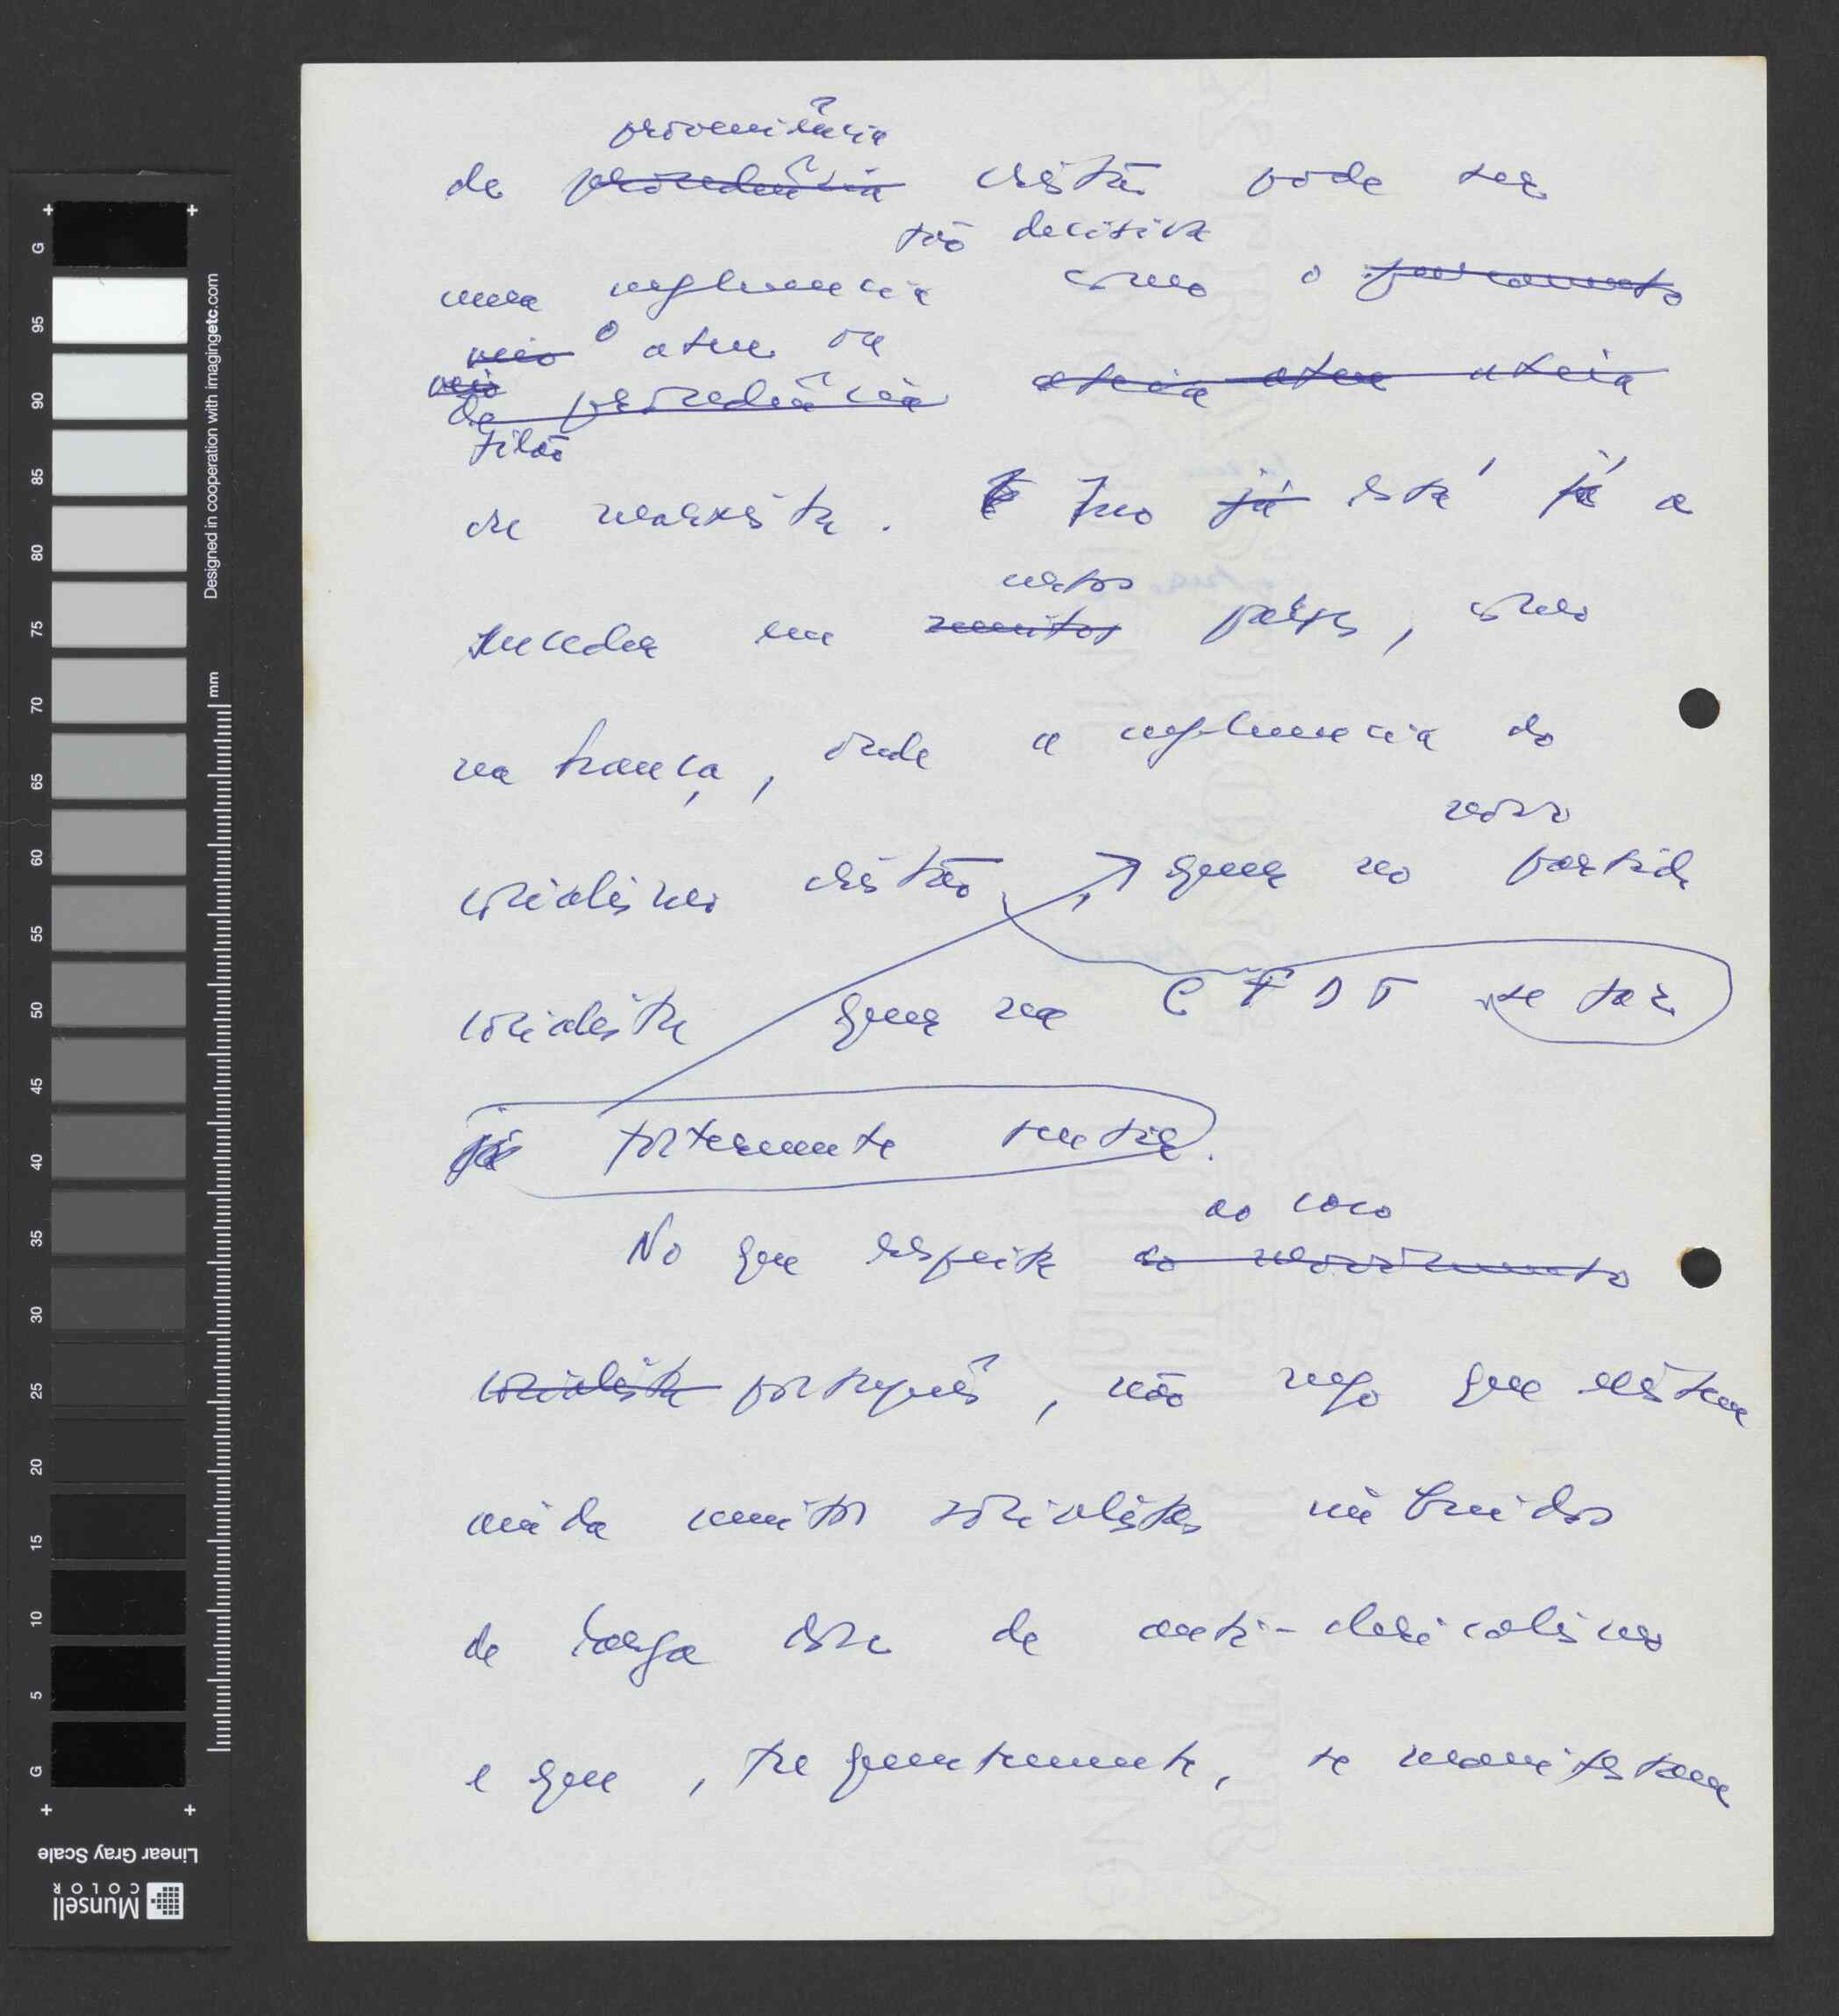 proveniência
de procedência cristã pode ser
tão decisiva
uma influencia como o pensamento
veio o ateu ou
veio
de procedência ateia ateu ateia
filão
ou marxista. E Isso já está já a
vários
suceder em muitos países, como
na França, onde a influencia do
novo
socialismo cristão, quer no partido
socialista quer na CFDT se faz
já fortemente sentir.
ao caso
No que respeita ao movimento
socialista português, não nego que existem
ainda muitos socialistas imbuidos
de larga dose de anti-clericalismo
e que, frequentemente, se manifestam
G
95
90
85
80
75
70
65
60
55
50
45
40
35
30
25
20
15
10
5
G
mm
Designed in cooperation with imagingetc.com
Linear Gray Scale
Munsell
COLOR